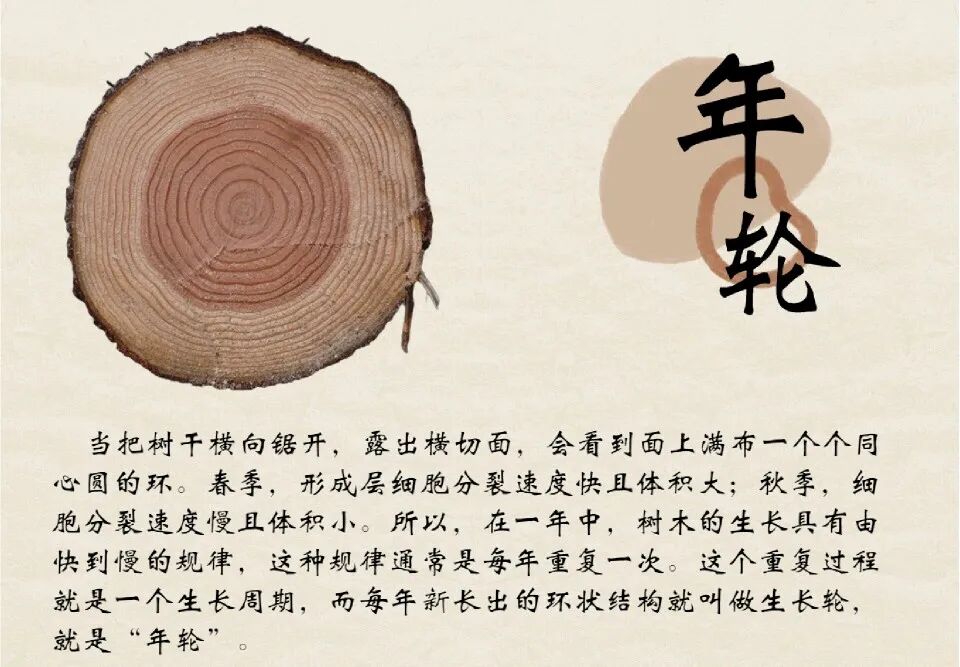 年轮
当把树干横向锯开，露出横切面，会看到面上满布一个个同
心圆的环。春季，形成层细胞分裂速度快且体积大；秋季，细
胞分裂速度慢且体积小。所以，在一年中，树木的生长具有由
快到慢的规律，这种规律通常是每年重复一次。这个重复过程
就是一个生长周期，而每年新长出的环状结构就叫做生长轮，
就是“年轮”。